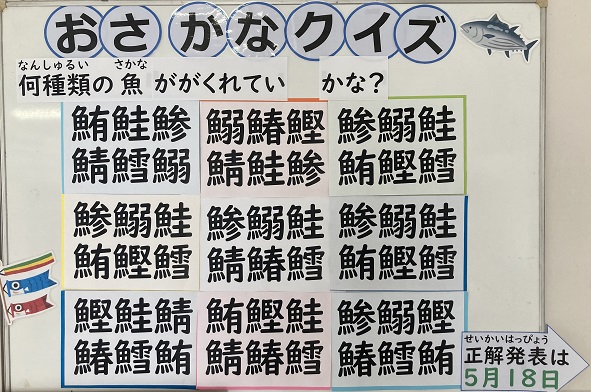 おさかなクイズ
なんしゅるい さかな
何種類の魚ががくれてい かな?
鮪鮭鯵 鰯鰆鰹 鯵鰯鮭
鯖鱈鰯 鯖鮭鯵 鮪鰹鱈
鯵鰯鮭 鯵鰯鮭 鯵鰯鮭
鮪鰹鱈 鯖鰆鱈 鮪鰹鱈
鰹鮭鯖 鮪鰹鮭 鯵鰯鰹
鰆鱈鮪 鯖鰆鱈 鰆鱈鮪
せいかいはっぴょう
正解発表は
5月18日